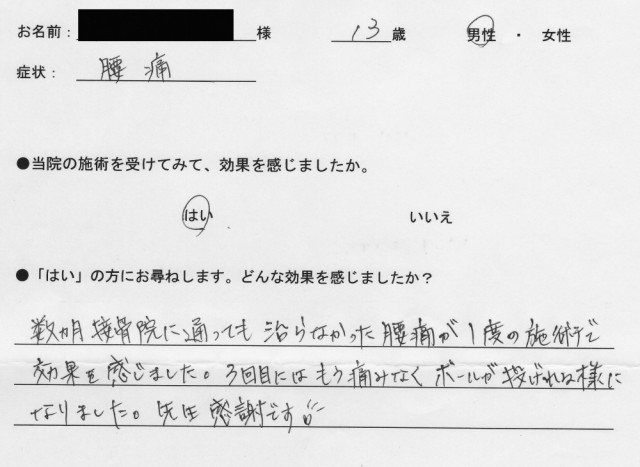 お名前： 様 13歳 男性 ・ 女性
症状： 腰痛
●当院の施術を受けてみて、効果を感じましたか。
はい いいえ
●「はい」の方にお尋ねします。どんな効果を感じましたか？
数ヵ月接骨院に通っても治らなかった腰痛が1度の施術で
効果を感じました。3回目にはもう痛みなくボールが投げれる様に
なりました。先生感謝です